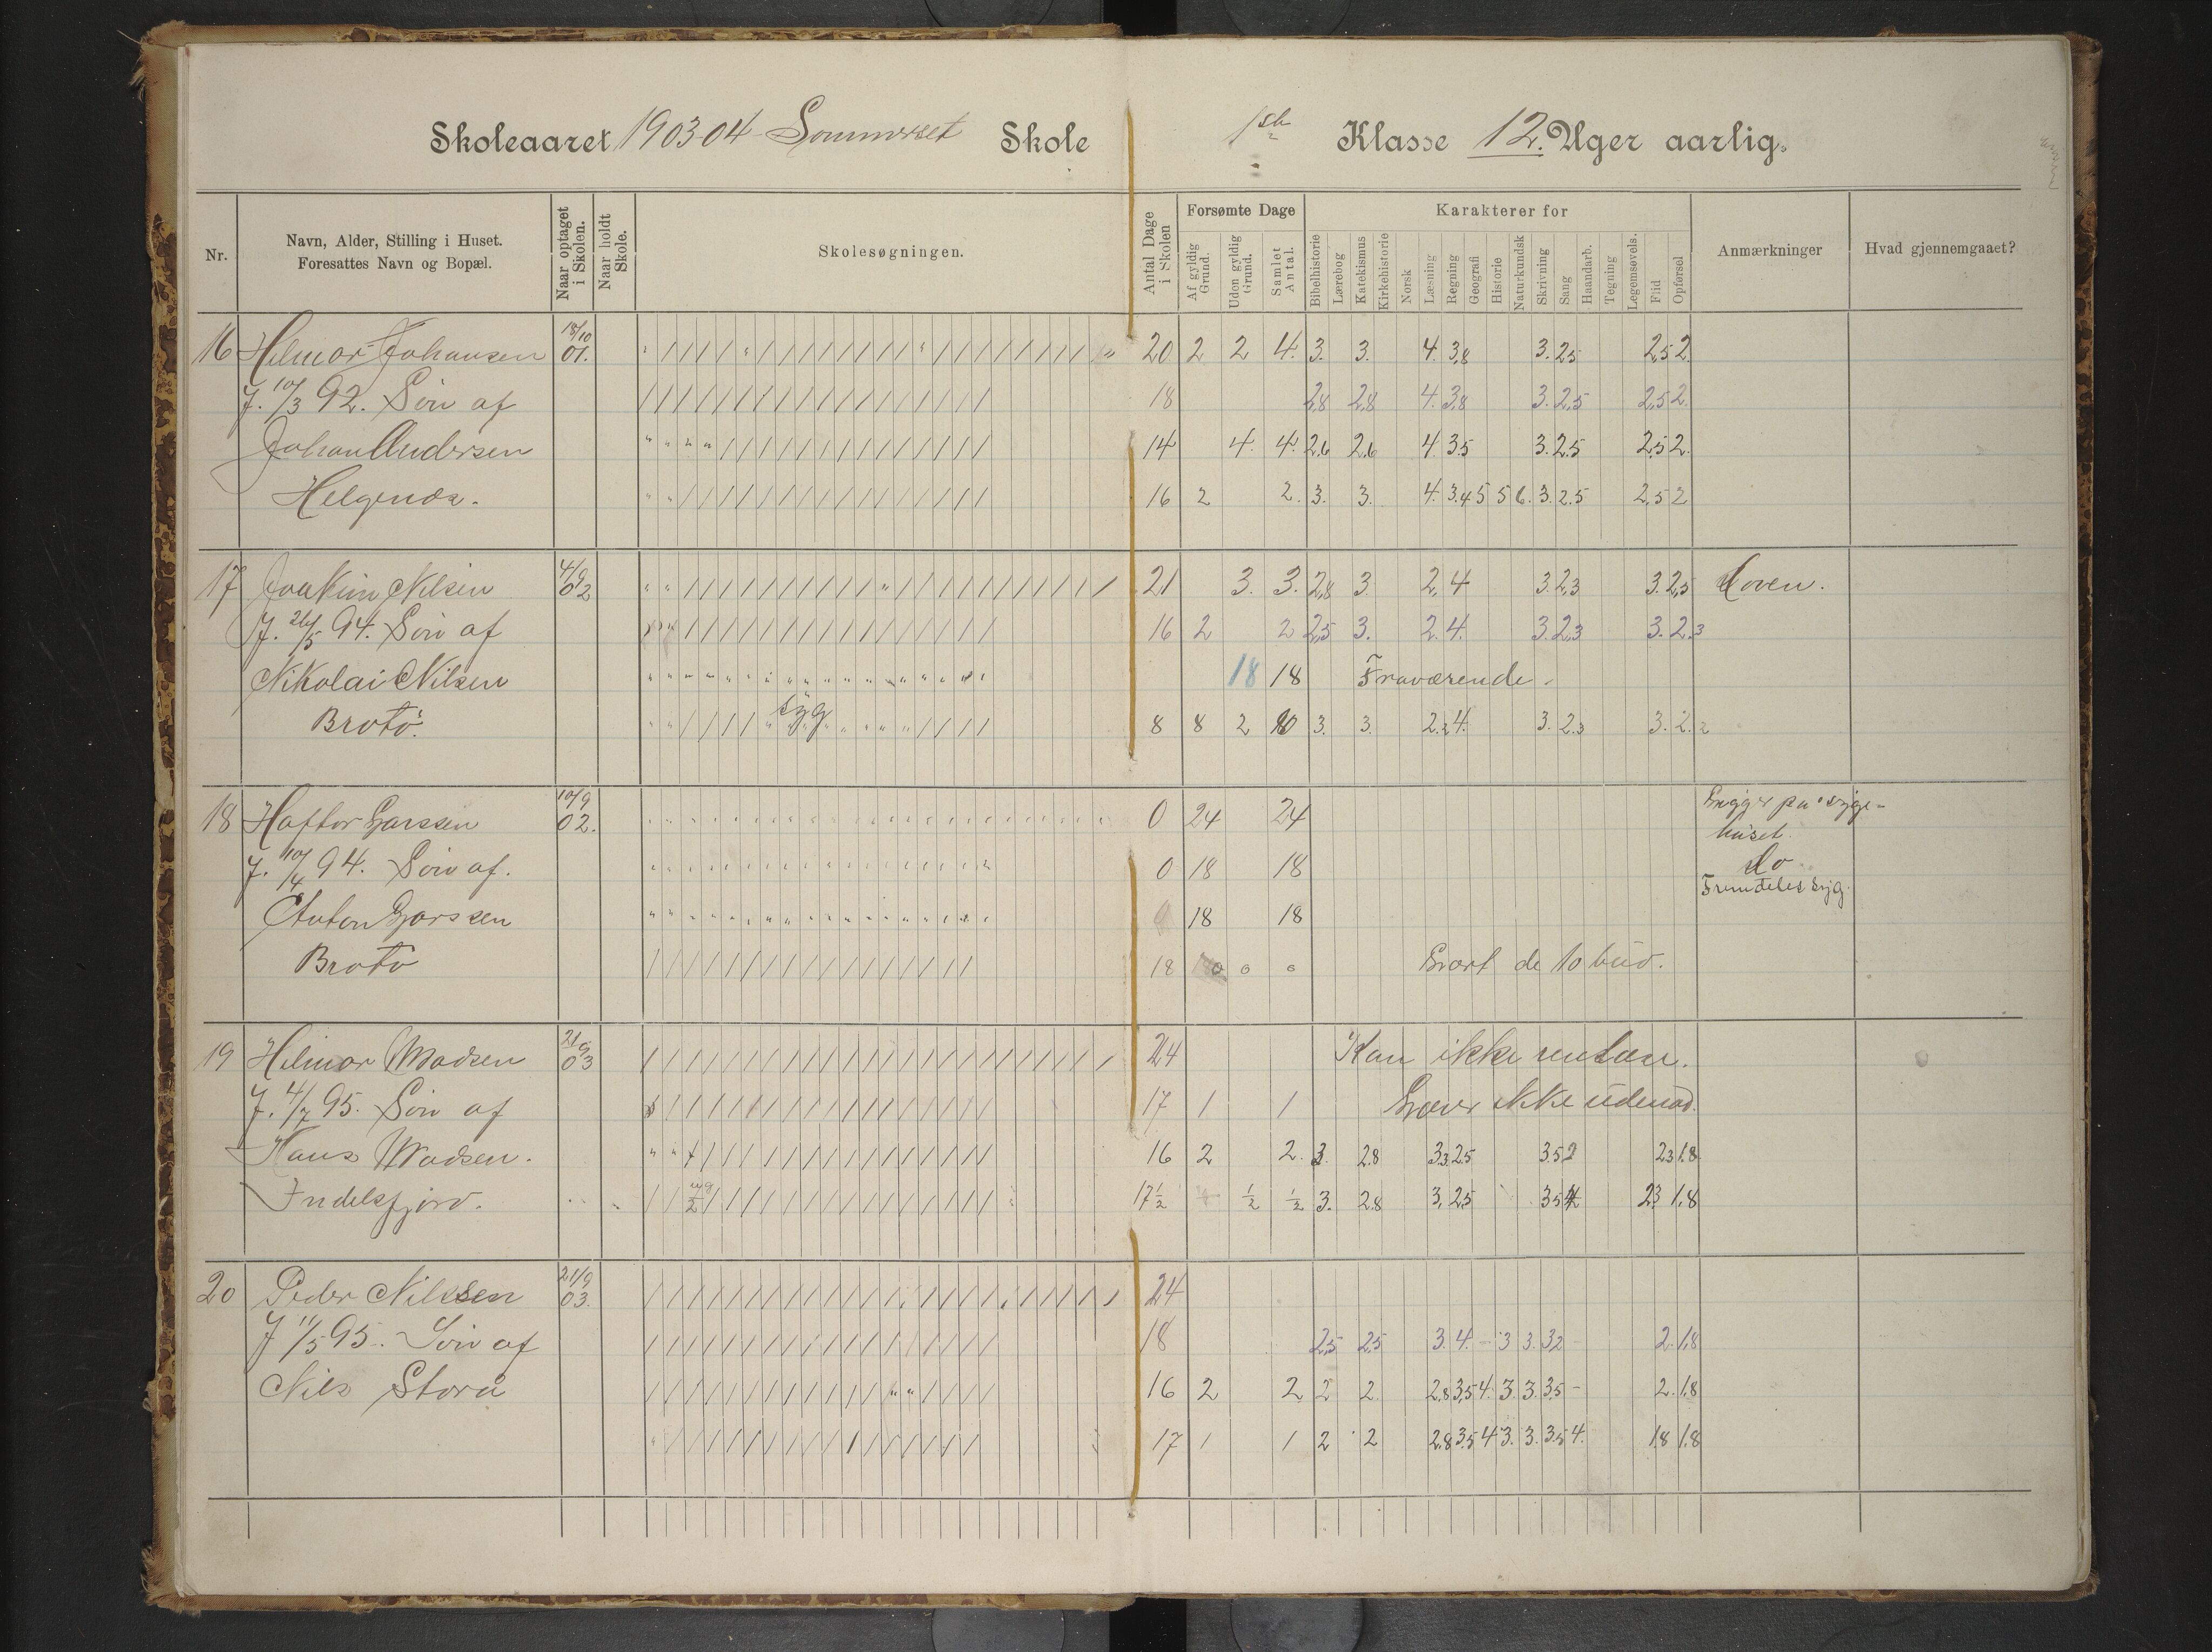 Skoleaaret 1903-04 Sommerset Skole 1ste Klasse 12. Uger aarlig.
Nr. Navn, Alder, Stilling i Huset. Foresattes Navn og Bopæl. Naar optaget i Skolen. Naar holdt Skole. Skolesøgningen. Antal Dage i Skolen Forsømte Dage Af gyldig Grund. Uden gyldig Grund. Samlet Antal. Karakterer for Bibelhistorie Lærebog Katekismus Kirkehistorie Norsk Læsning Regning Geografi Historie Naturkundsk Skrivning Sang Haandarb. Tegning Legemsøvels. Flid Opførsel Anmærkninger Hvad gjennemgaaet?
16 Hilmar Johansen 18/10 01. 20 2 2 4. 3. 3. 4. 3,8 3. 2,5 2,5 2.
F. 10/3 92. Søn af 18 2,8 2,8 4. 3,8 3. 2,5 2,5 2.
Johan Andersen 14 4. 4. 2,6 2,6 4 3,5 3. 2,5 2,5 2.
Helgenæs. 16 2 2. 3. 3. 4. 3,4 5 5 6. 3. 2,5 2,5 2
17 Joakim Nilsen 4/9 02 21 3. 3. 2,8 3. 2, 4 3. 2,3 3. 2,5 Doven.
F. 26/5 94. Søn af 16 2 2 2,5 3. 2. 4. 3. 2,3 3. 2.3
Nikolai Nilsen 18 18 Fraværende.
Brotø. syg 8 8 2 10 3. 3. 2.2 4. 3. 2.3 3. 2.2
18 Haftor Larssen 10/9 02. 0 24 24 Ligger på syge-
huset.
F. 10/4 94. Søn af. 0 18 18 do
Fremdeles syg.
Anton Larssen 18 18
Brotø 18 0 0 0 Lært de 10 bud.
19 Hilmar Madsen 21/9 03 24 Kan ikke
F. 4/7 95. Søn af 17 1 1 Læser ikke udenad.
Hans Madsen. 16 2 2. 3. 2.8 3.3 2.5 3.5 2 2.3 1.8
Indelsfjord. 17 1/2 1/2 1/2 3. 2.8 3, 2,5 3.5 2,3 1,8
20 Peder Nilssen 21/9 03. 24
F. 11/5 95. Søn af 18 2,5 2,5 3. 4. - 3 3. 3,2 - 2. 1,8
Nils Storå 16 2 2 2 2. 2,8 3,5 4. 3. 3. 3,5 - 2. 1.8
17 1 1 2 2 2,8 3,5 4 3. 3. 3,5 4. 1.8 1.8